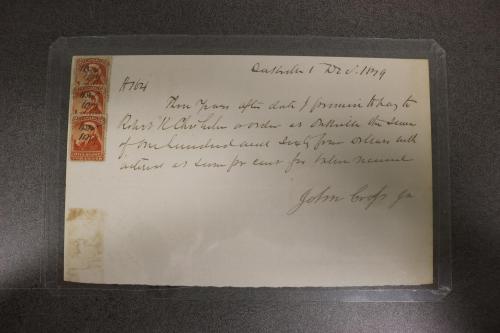 Oakville 1 Dec. 1879
$164
Three years after date I promise to pay to
Robert K. or order at Oakville the sum
of one hundred and sixty four dollars with
interest at per cent for value received
John Cross Jr